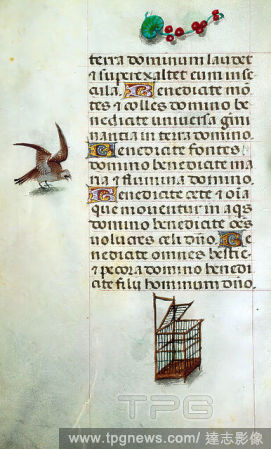 terra dominum laudet
et superexaltet eum in se
cula. Benedicite mō
tes et colles domino be
nedicite universa gmi
nantia in terra domino.
Benedicite fontes
domino benedicite ma
ria et flumina domino.
Benedicite cete et oīa
que moventur in aqs
domino benedicite oēs
volucres celi dño. Be
nedicite omnes bestie
et pecora domino benedi
cite filii hominum dño.
TPG
www.tpgnews.com/ 達志影像